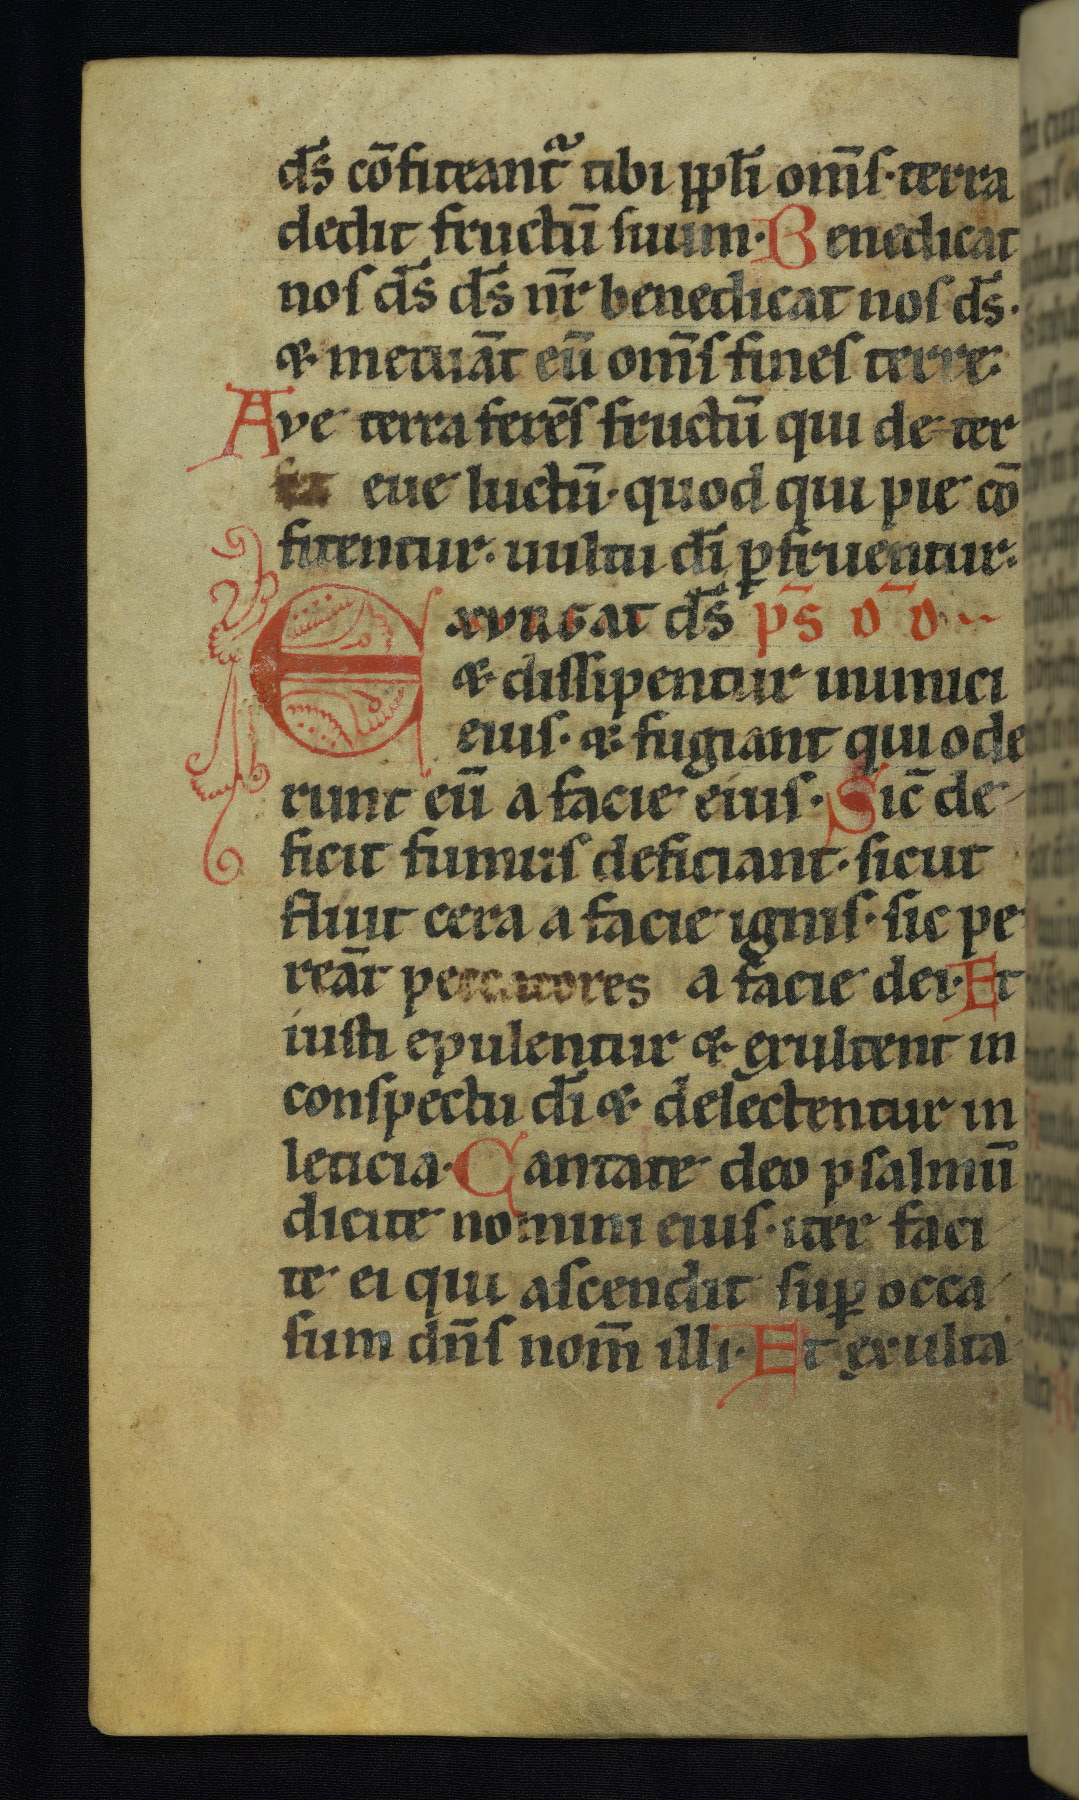 dſ̄ cōfiteant᷑ tibi ppl̄i om̄ſ·terra
dedit fructū ſuum·Benedicat
noſ dſ̄ dſ̄ nr̄ benedicat noſ dſ̄·
& metuāt eū om̄ſ fineſ terre·
Ave terra ferēſ fructū qui de ter
eue luctū·quod qui pie cō
fitentur·uultu dī ꝑfruentur·
Exurgat dſ̄ pſ̄
& diſſipentur inimici
eiuſ·& fugiant qui ode
runt eū a facie eiuſ·Sic̄ de
ficit fumuſ deficiant·ſicut
fluit cera a facie igniſ·ſic pe
reāt peccatores a facie dei·Et
iuſti epulentur & exultent in
conſpectu dī & delectentur in
leticia·Cantate deo pſalmū
dicite nomini eiuſ·iter faci
te ei qui aſcendit ſuꝑ occa
ſum dn̄ſ nom̄ illi·Et exulta